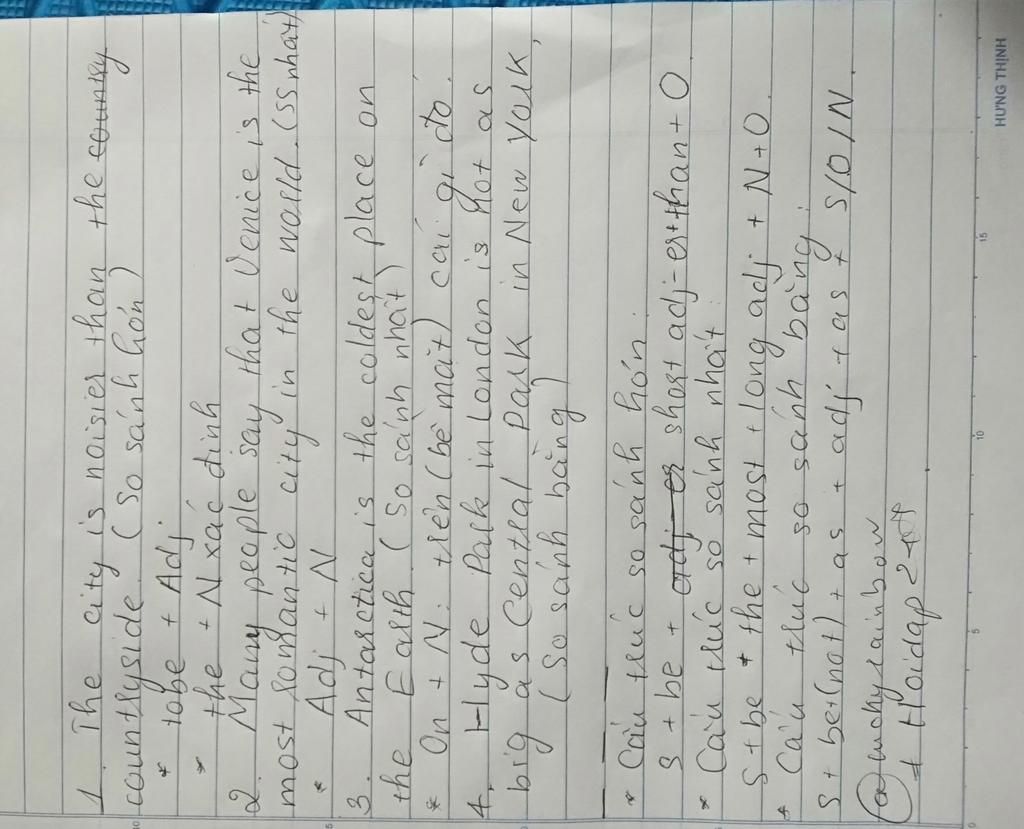 1. The city is noisier than the country
countryside. (So sánh hơn)
* tobe + Adj.
* the + N xác định
2. Many people say that Venice is the
most romantic city in the world. (ss nhất)
* Adj + N
3. Antarctica is the coldest place on
the Earth (So sánh nhất)
* On + N: trên (bề mặt) cái gì đó.
4. Hyde Park in London is not as
big as Central Park in New York,
(So sánh bằng)
* Cấu trúc so sánh hơn.
S + be + adj-er short adj-er+than+ O
* Cấu trúc so sánh nhất:
S + be + the + most + long adj + N+O.
* Cấu trúc so sánh bằng:
S + be+(not) + as + adj + as + S/O/N
@mchyrainbow
+ Hoidap 247
HƯNG THỊNH
5
10
15